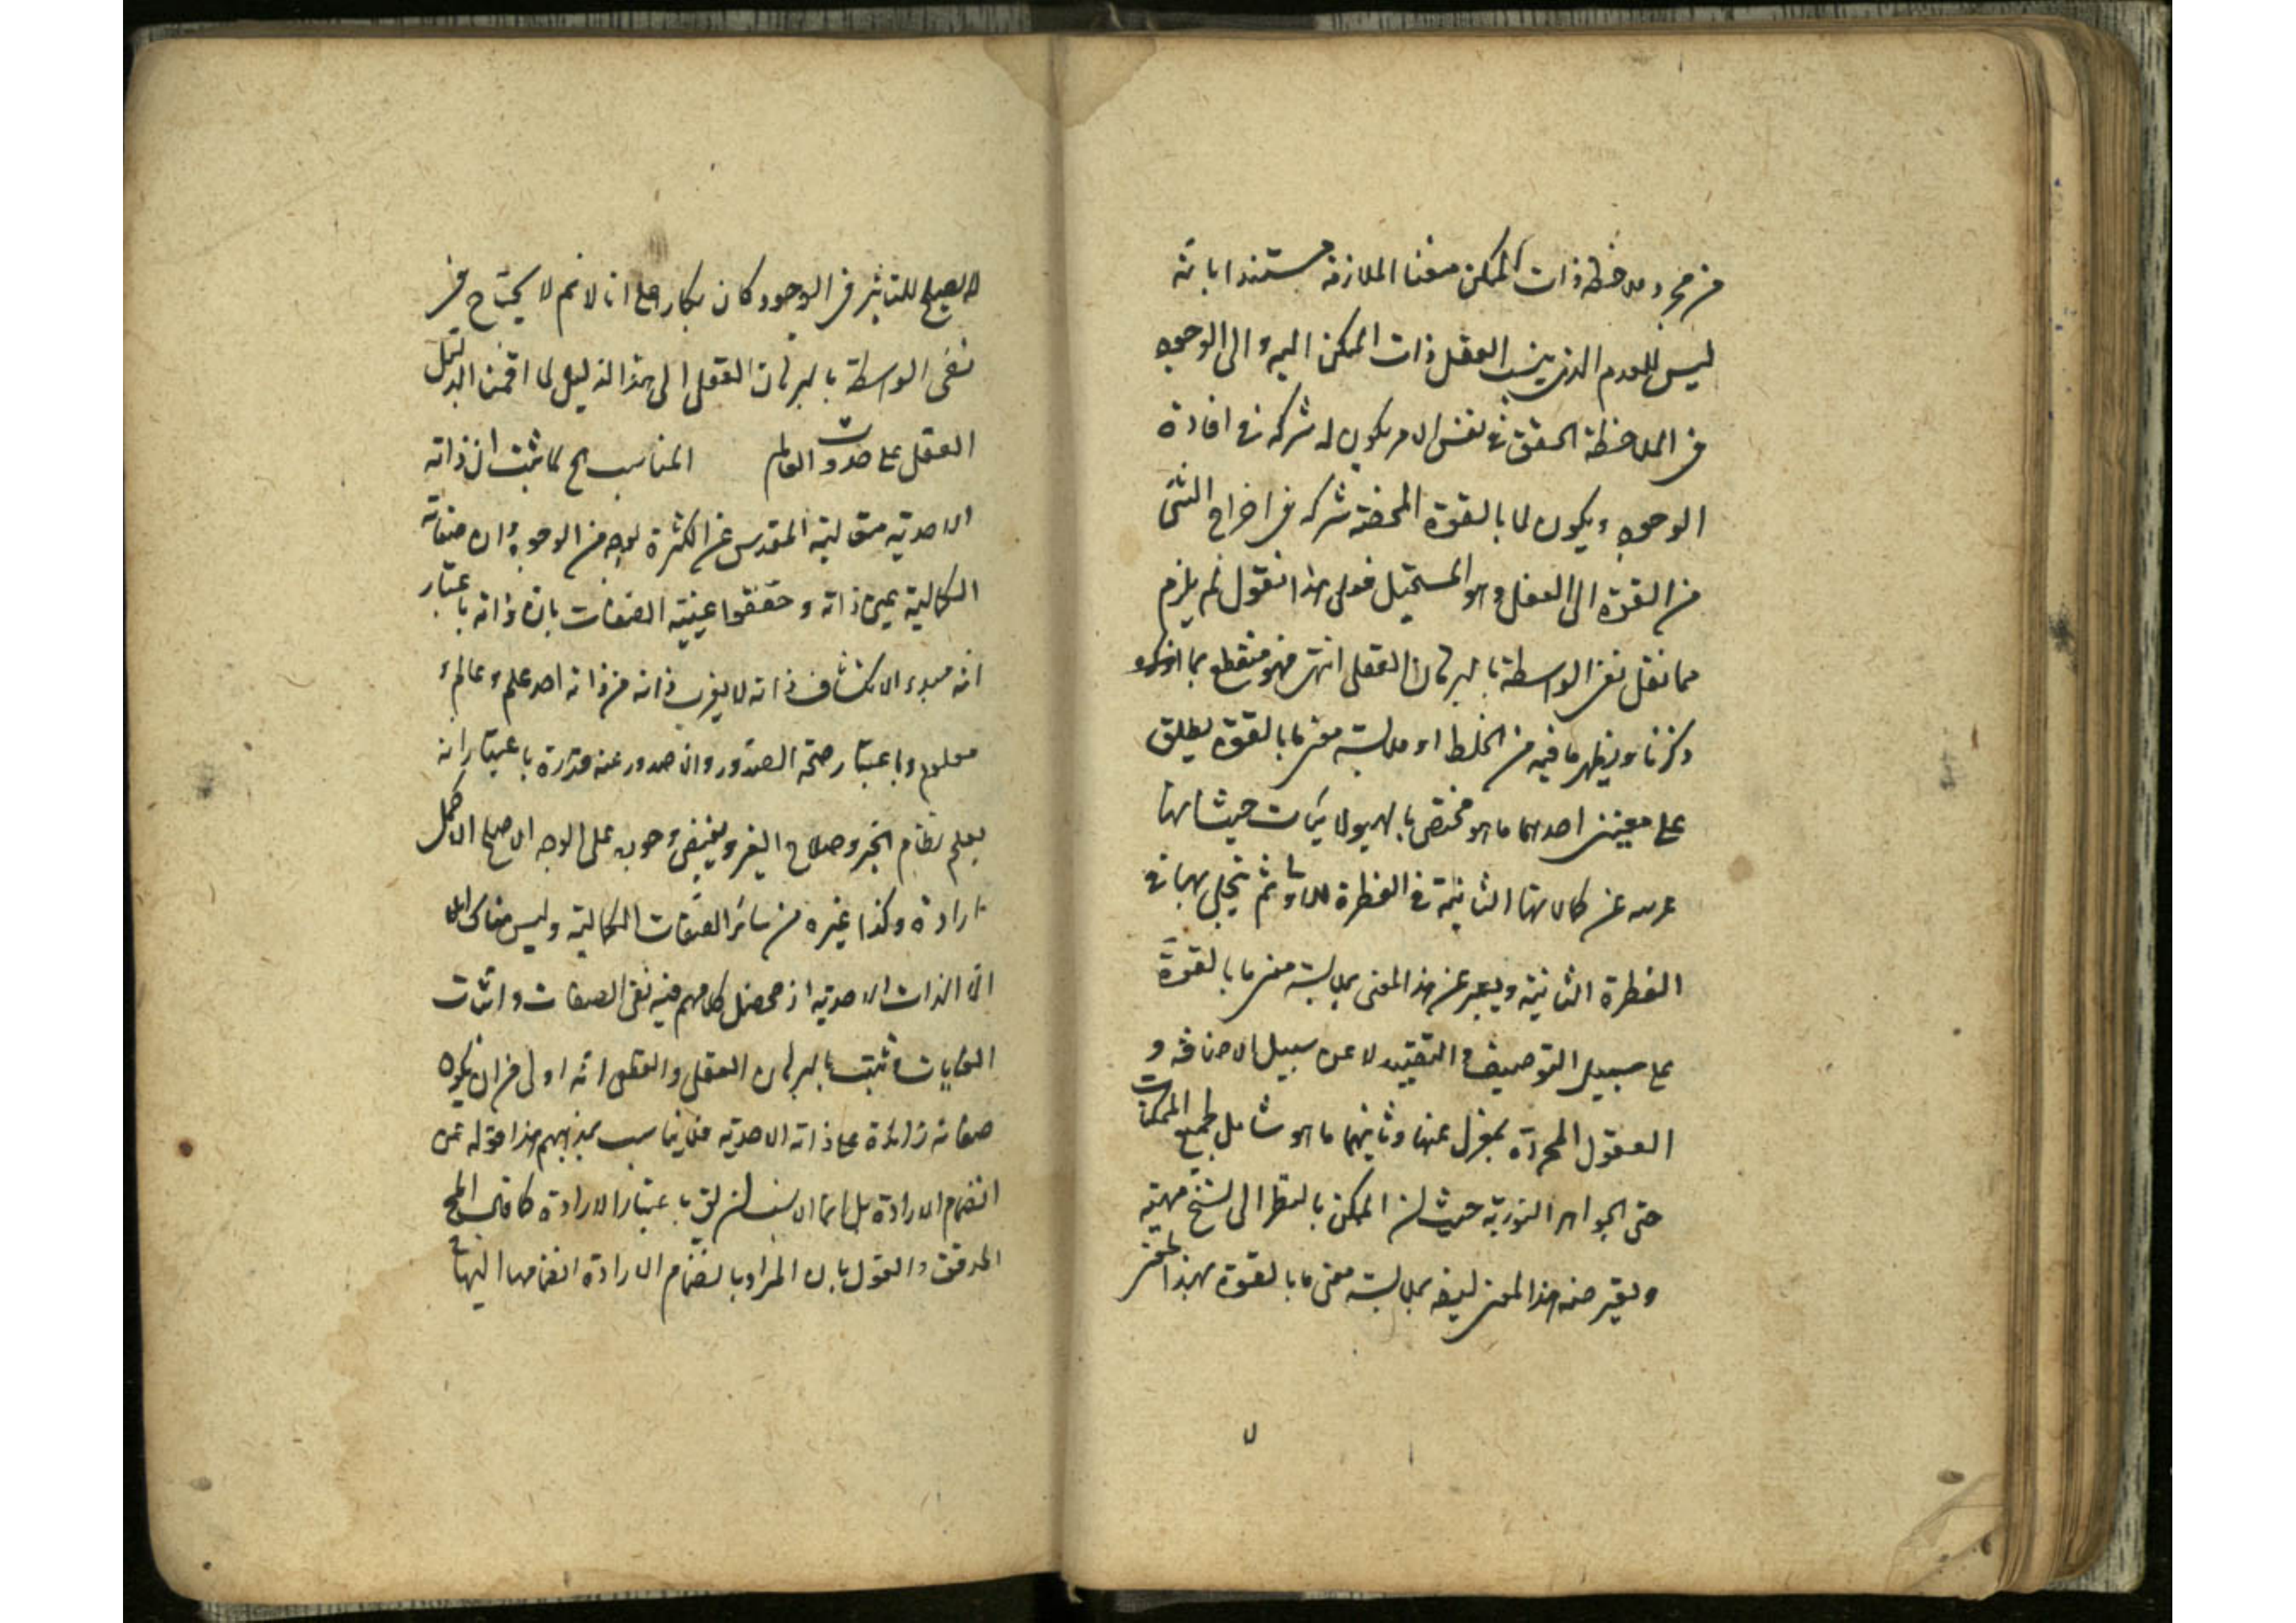 من مجرد ملاحظة ذات الممكن معنا الملازمة مستندا بانه
ليس للعدم الذى ينسب العقل ذات الممكن اليه و الى الوجود
فى الملاحظة التحقق فى نفس الامر يكون له شركة فى افادة
الوجود و يكون لما بالقوة المحضة شركة فى اخراج الشئ
من القوة الى الفعل وهو المستحيل فعلى هذا نقول لم يلزم
مما نقل نفى الواسطة بالبرهان العقلى انتهى فهو منقطع بما
ذكرنا و يظهر ما فيه من الخلط اذ ملابسة معنى ما بالقوة يطلق
على معنيين احدهما ما هو مختص بالهيولانيات حيث انها
عريه عن كمالاتها الثانية فى الفطرة الاولى ثم تتحلى بها فى
الفطرة الثانية ويعبر عن هذا المعنى بملابسة معنى ما بالقوة
على سبيل التوصيف و التقييد لا على سبيل الاضافة و
العقول المجردة بمعزل عنها وثانيهما ما هو شامل لجميع الممكنات
حتى الجواهر النورية حيث ان الممكن بالنظر الى سنخ مهيته
و يعبر عنه هذا المعنى ايضا بملابسة معنى ما بالقوة بهذا المعنى
لا يصلح للتاثير فى الوجود كان بكار على انا لا نم لا يحتاج فى
نفى الواسطة بالبرهان العقلى الى هذا الدليل لما اقمنا الدليل
العقلى على حدوث العالم المناسب لما ثبت ان ذاته
الاحدية متعالية المقدس عن الكثرة بوجه من الوجوه و ان صفاته
الكمالية عين ذاته و حققوا عينية الصفات بان ذاته باعتبار
انه مبدء الانكشاف ذاته لا يعزب ذاته من ذاته احد علم و عالم و
معلوم و باعتبار صحة الصدور و ان صدور عنه قدرة باعتبار انه
يعلم نظام الخير و صلاح الغير و يفيض وجوده على الوجه الاصلح الاكمل
ارادة وكذا غيره من سائر الصفات الكمالية و ليس هناك
الا الذات الاحدية اذ محصل كلامهم فيه نفى الصفات و اثبات
الغايات ثبت بالبرهان العقلى و النقلى انه اولى من ان يكون
صفاته زائدة على ذاته الاحدية فلا يناسب بمذاهبهم هذا قوله عن
انضمام الارادة بل انما الانسب ان يق باعتبار الارادة كما قال المحقق
المدقق و القول بان المراد بانضمام الارادة انضمامها اليها